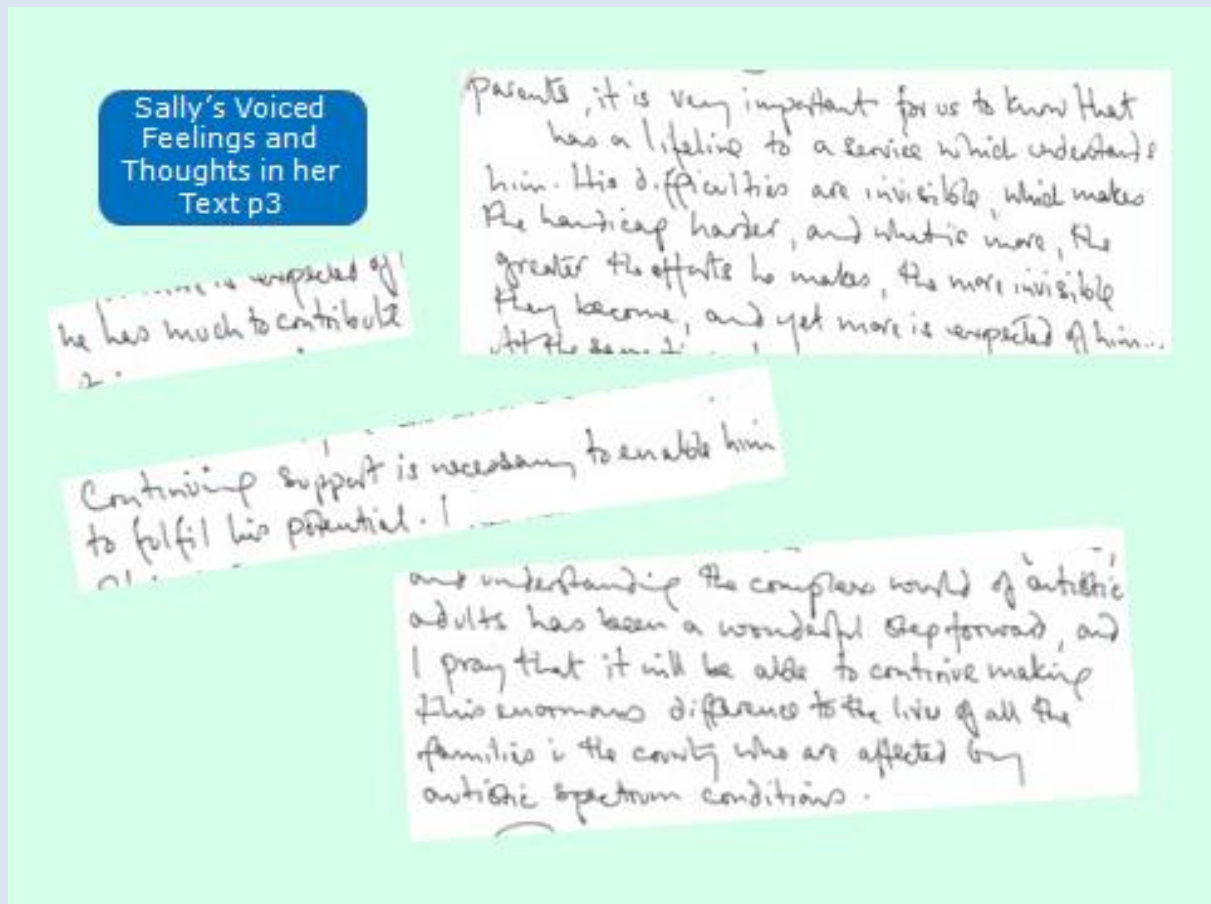 Sally's Voiced
Feelings and
Thoughts in her
Text p3
parents, it is very important for us to know that
has a lifeline to a service which understands
him. His difficulties are invisible, which makes
the handicap harder, and what is more, the
greater the efforts he makes, the more invisible
they become, and yet more is expected of him...
At the same
is expected of
he has much to contribute
Continuing support is necessary to enable him
to fulfil his potential. I
and understanding the complex world of autistic
adults has been a wonderful step forward, and
I pray that it will be able to continue making
this enormous difference to the lives of all the
families i the county who are affected by
autistic spectrum conditions.